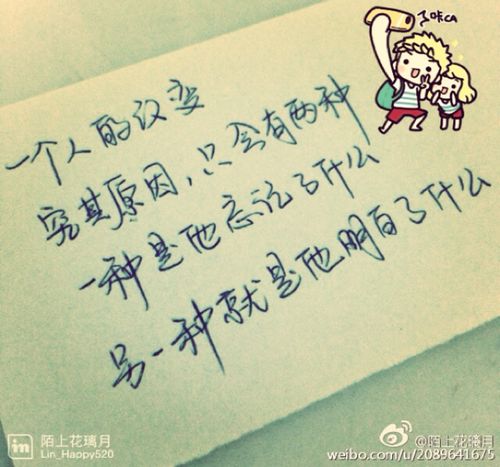 一个人的改变
究其原因,只会有两种
一种是他忘记了什么
另一种就是他明白了什么
陌上花璃月
Lin_Happy520
@陌上花璃月
weibo.com/u/2089641675